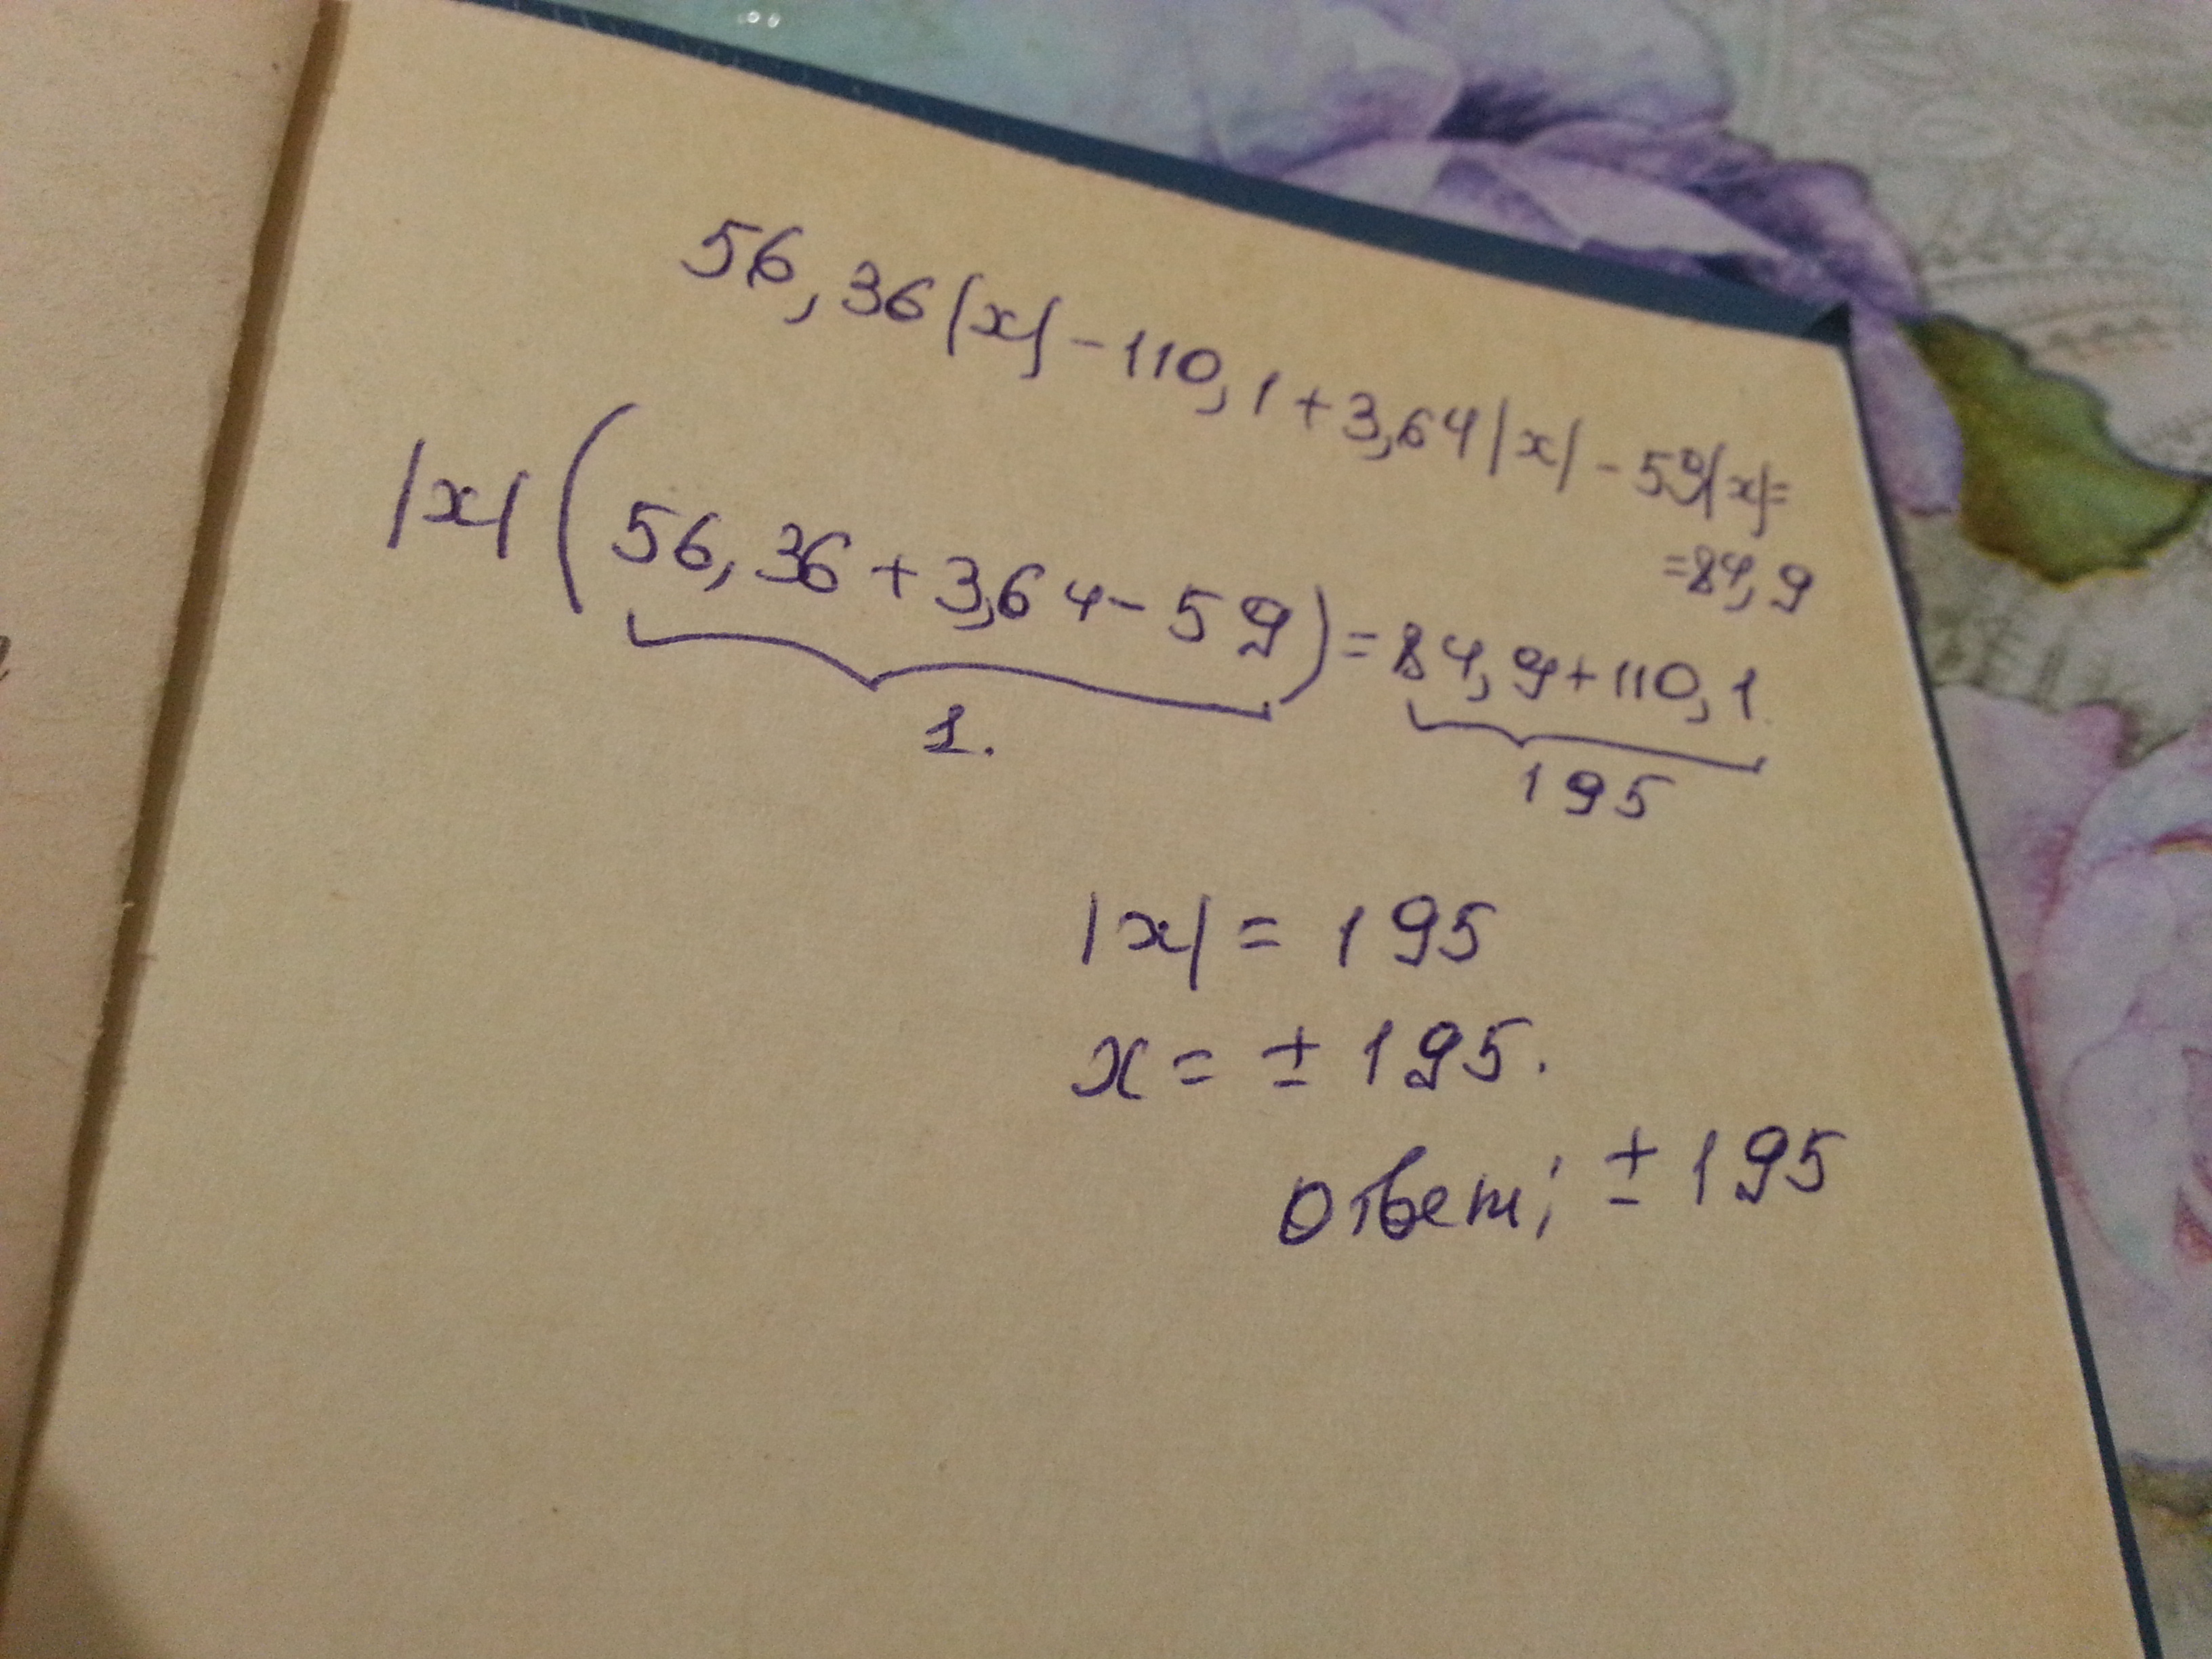 56,36|x| - 110,1 + 3,64|x| - 59|x| =
= 84,9
|x| (56,36 + 3,64 - 59) = 84,9 + 110,1
1. 195
|x| = 195
x = ± 195.
Ответ; ± 195